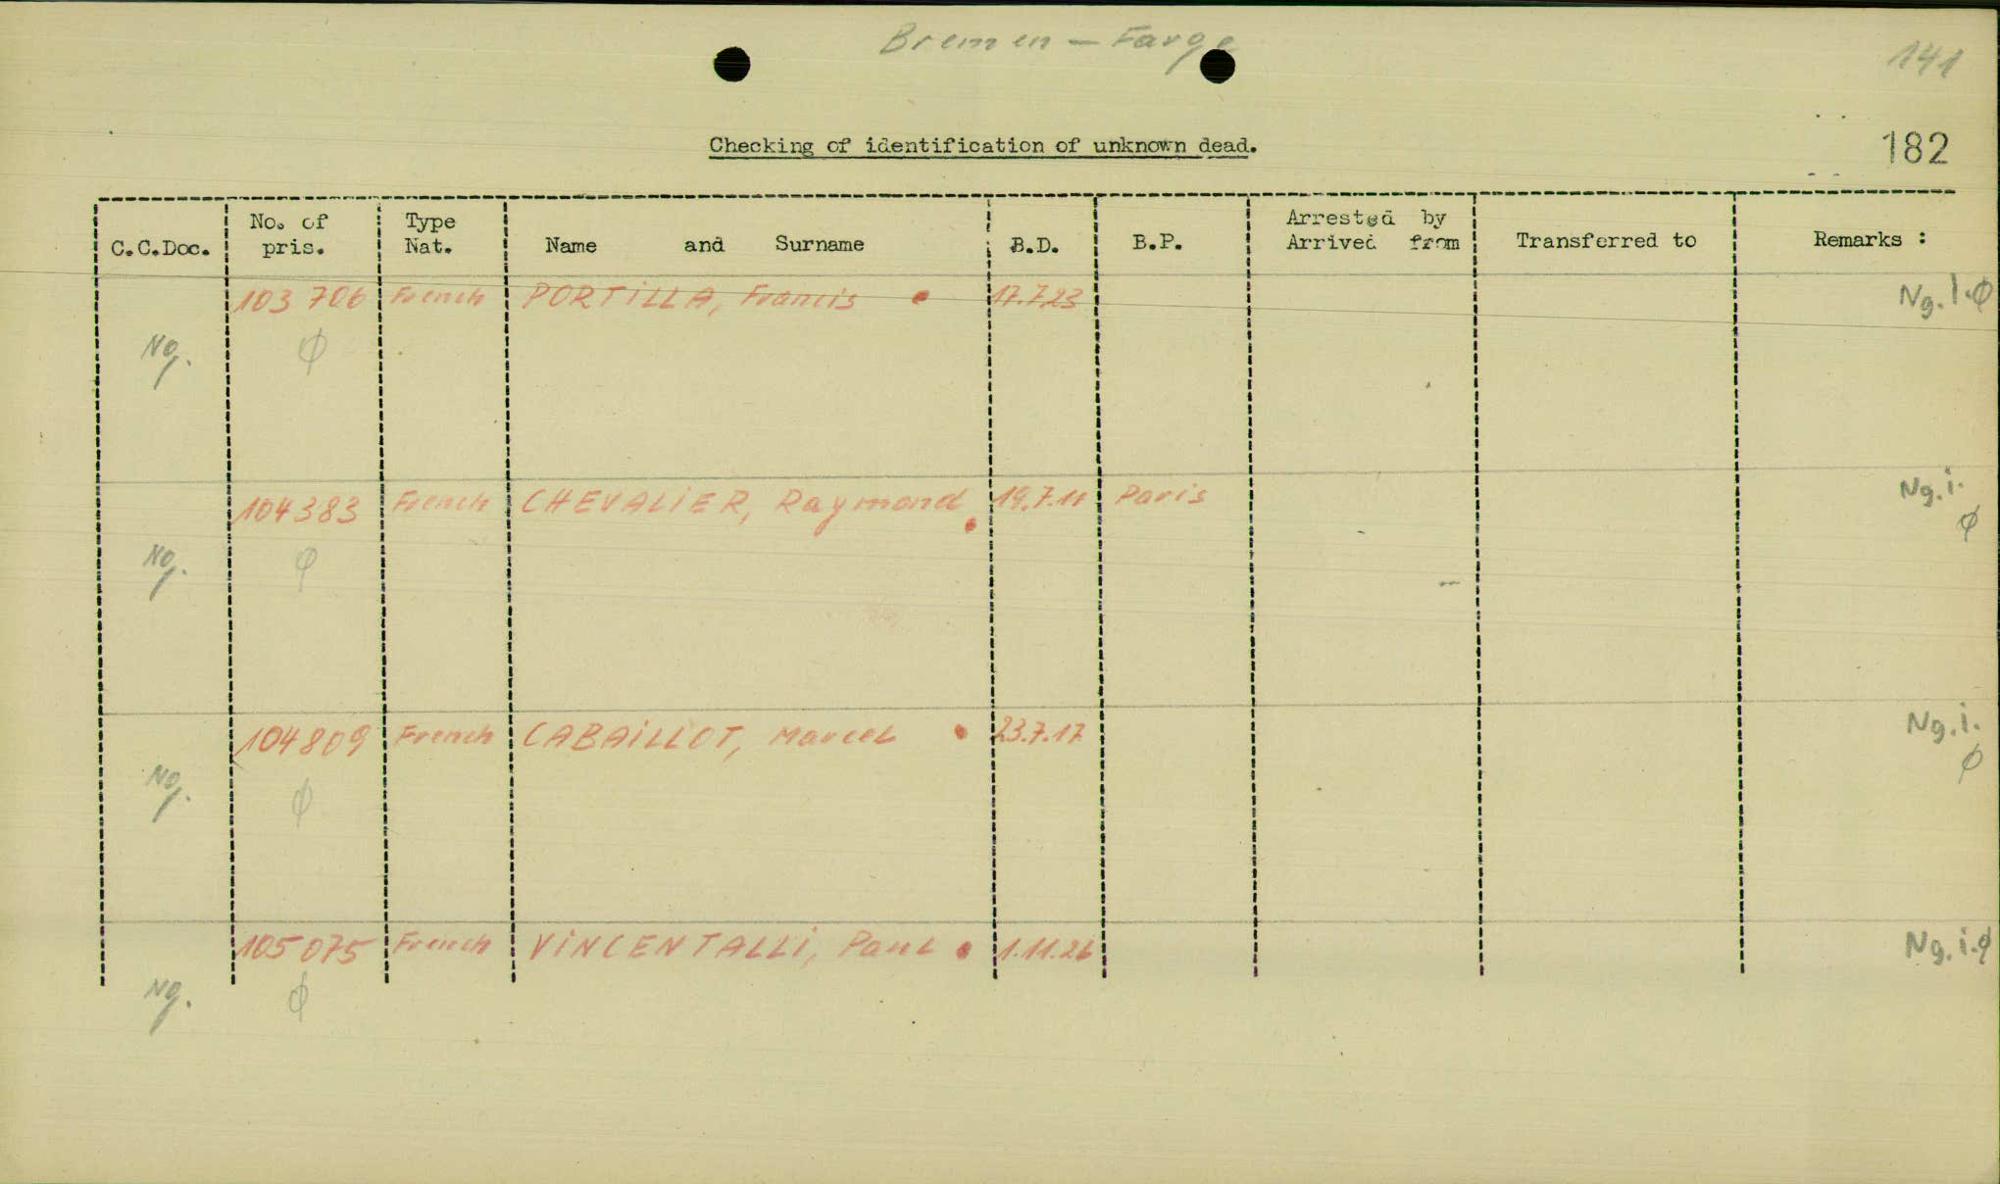 Bremen - Farge
141
Checking of identification of unknown dead.
182
C.C.Doc. No. of pris. Type Nat. Name and Surname B.D. B.P. Arrested by Arrived from Transferred to Remarks :
103 706 French PORTiLLA, Francis 17.7.23 Ng. I. Ø
Ng. Ø
104383 French CHEVALiER, Raymond 19.7.11 Paris Ng. i.
Ø
Ng. Ø
104809 French CABAiLLOT, Marcel 23.7.17 Ng. i.
Ø
Ng. Ø
105075 French ViNCENTALLi, Paul 1.11.26 Ng. i. Ø
Ng. Ø